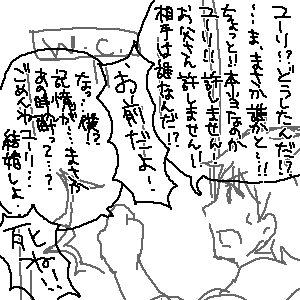 ユーリ!?どうしたんだ!?
…ま、まさか誰かと…!!
なぅっと!!本当なのか
ユーリ!!許しません!!
お父さん許しません!!
相手は誰なんだ!?
お前だよ!
なっ…僕!?
記憶が…まさか
あの時酔って…?
ごめんねユーリ…!
結婚しよ…
死ね!!